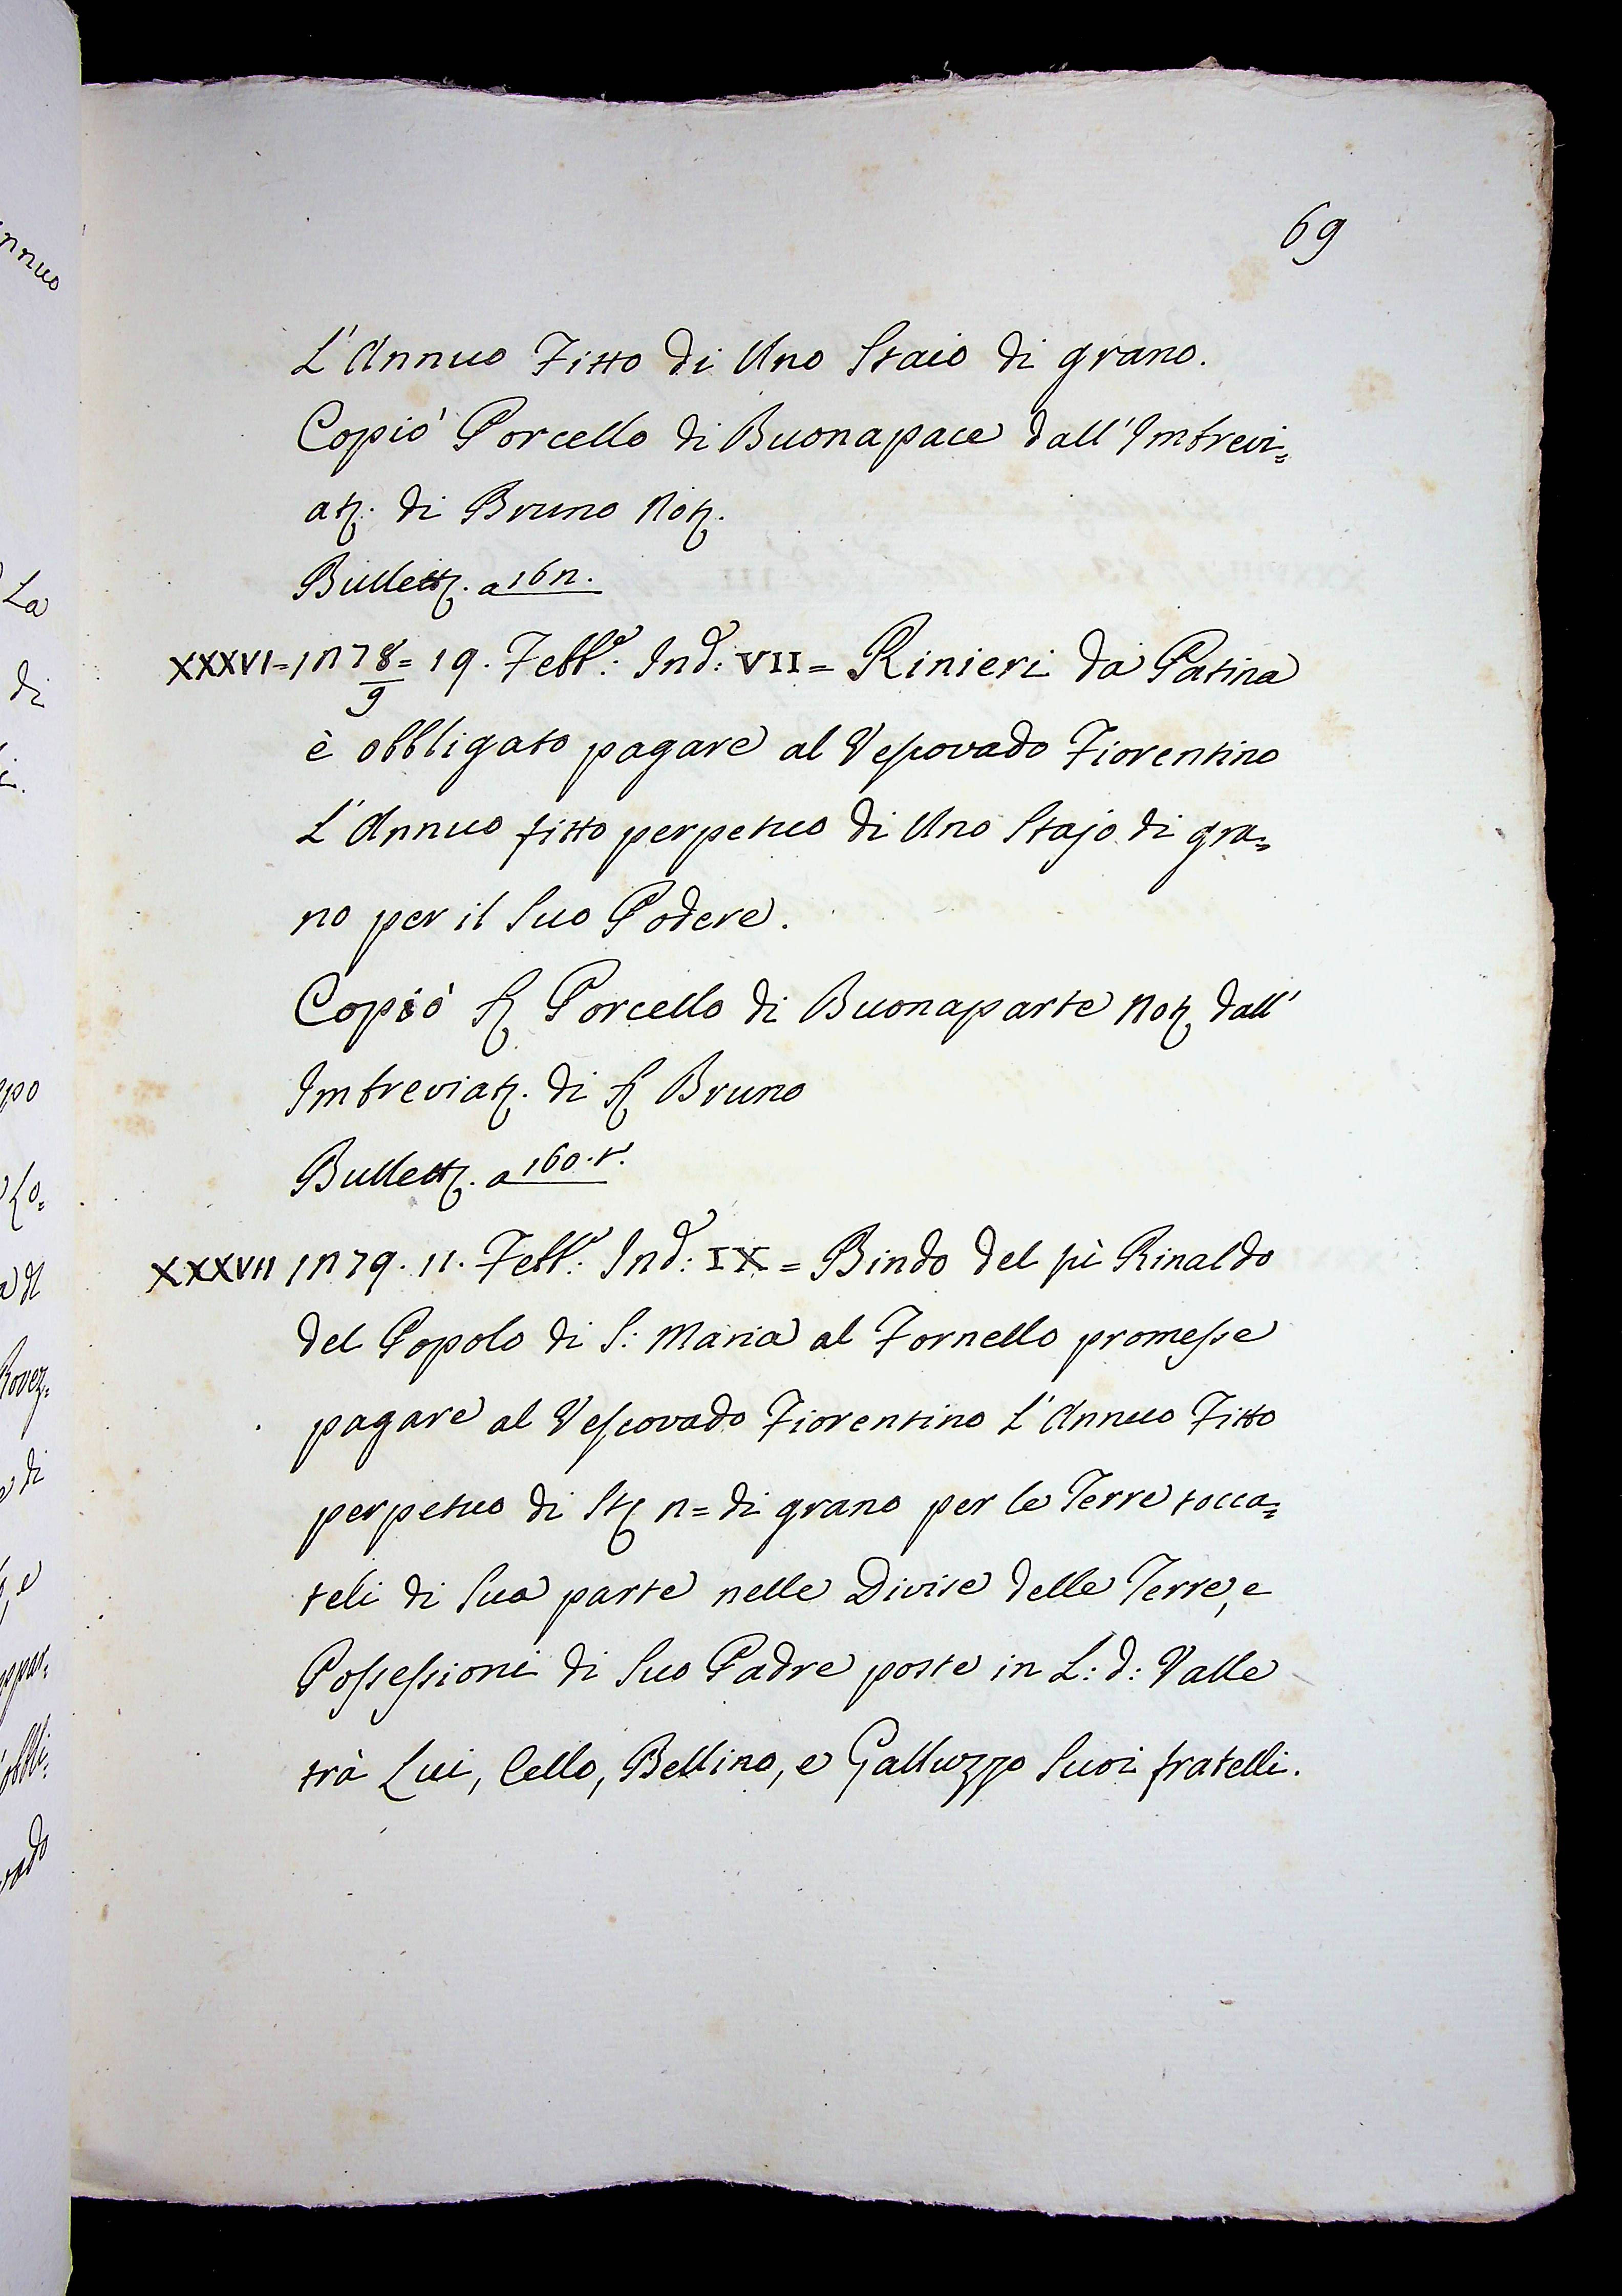 69
L'Annuo Fitto di Uno Staio di grano.
Copiò Porcello di Buonapace dall'Imbrevi=
atz. di Bruno Notz.
Bullettz. a 162.
XXXVI=1278=19. Febb.º: Ind: VII= Rinieri da Patina
9
è obbligato pagare al Vescovado Fiorentino
L'Annuo fitto perpetuo di Uno Stajo di gra=
no per il Suo Podere.
Copiò Porcello di Buonaparte Notz dall'
Imbreviatz. di Bruno
Bullettz. a 160.
XXXVII 1279. 11. Febb.º: Ind: IX = Bindo del Rinaldo
del Popolo di S: Maria al Fornello promesse
pagare al Vescovado Fiorentino L'Annuo Fitto
perpetuo di Stz 2= di grano per le Terre tocca=
teli di Sua parte nelle Divise delle Terre, e
Possessioni di Suo Padre poste in L: d: Valle
trà Lui, Cello, Bellino, e Galluzzo Suoi fratelli.
nnuo
La
di